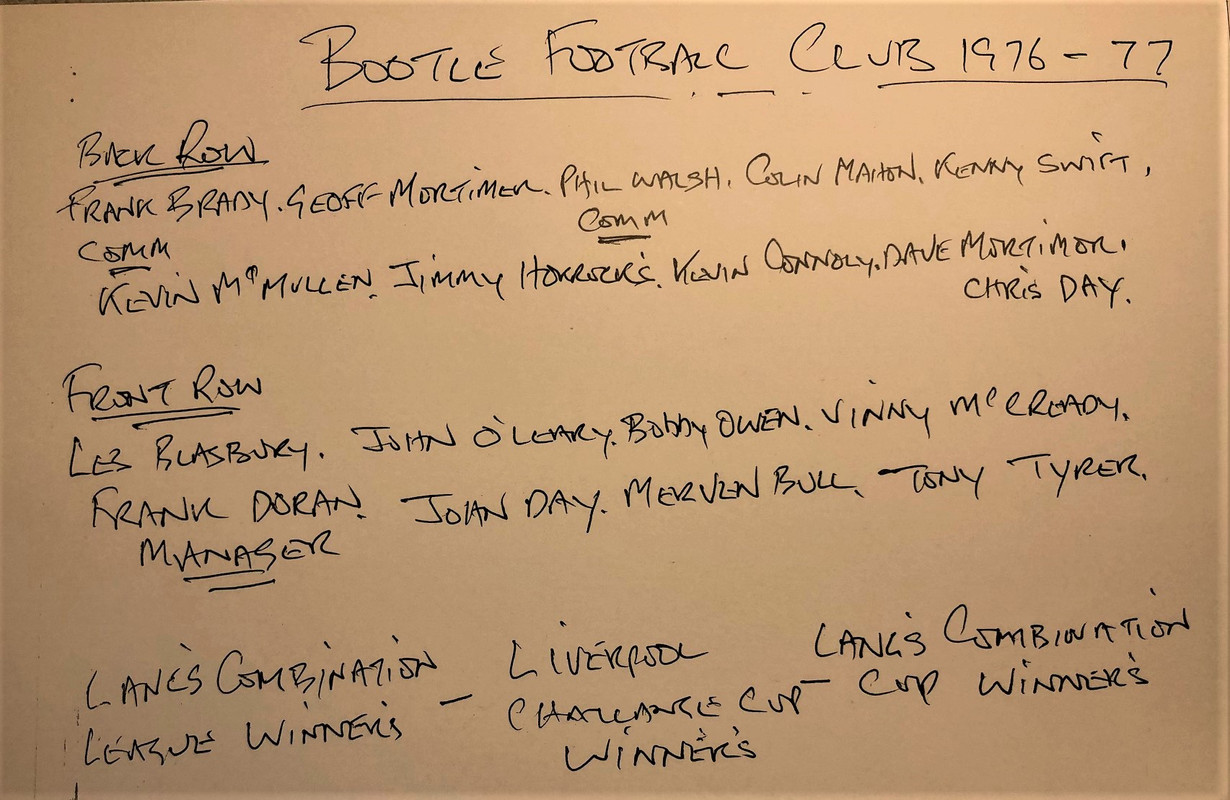 BOOTLE FOOTBALL CLUB 1976 - 77
BACK ROW
FRANK BRADY. GEOFF MORTIMER. PHIL WALSH. COLIN MAHON. KENNY SWIFT,
COMM COMM
KEVIN McMULLEN. JIMMY HORROCK'S. KEVIN CONNOLY. DAVE MORTIMOR.
CHRIS DAY.
FRONT ROW
LES BLASBURY. JOHN O'LEARY. BOBBY OWEN. VINNY McCREADY.
FRANK DORAN. JOHN DAY. MERVEN BULL. TONY TYRER.
MANAGER
LANC'S COMBINATION - LIVERPOOL - LANC'S COMBINATION
LEAGUE WINNER'S CHALLANGE CUP CUP WINNER'S
WINNER'S